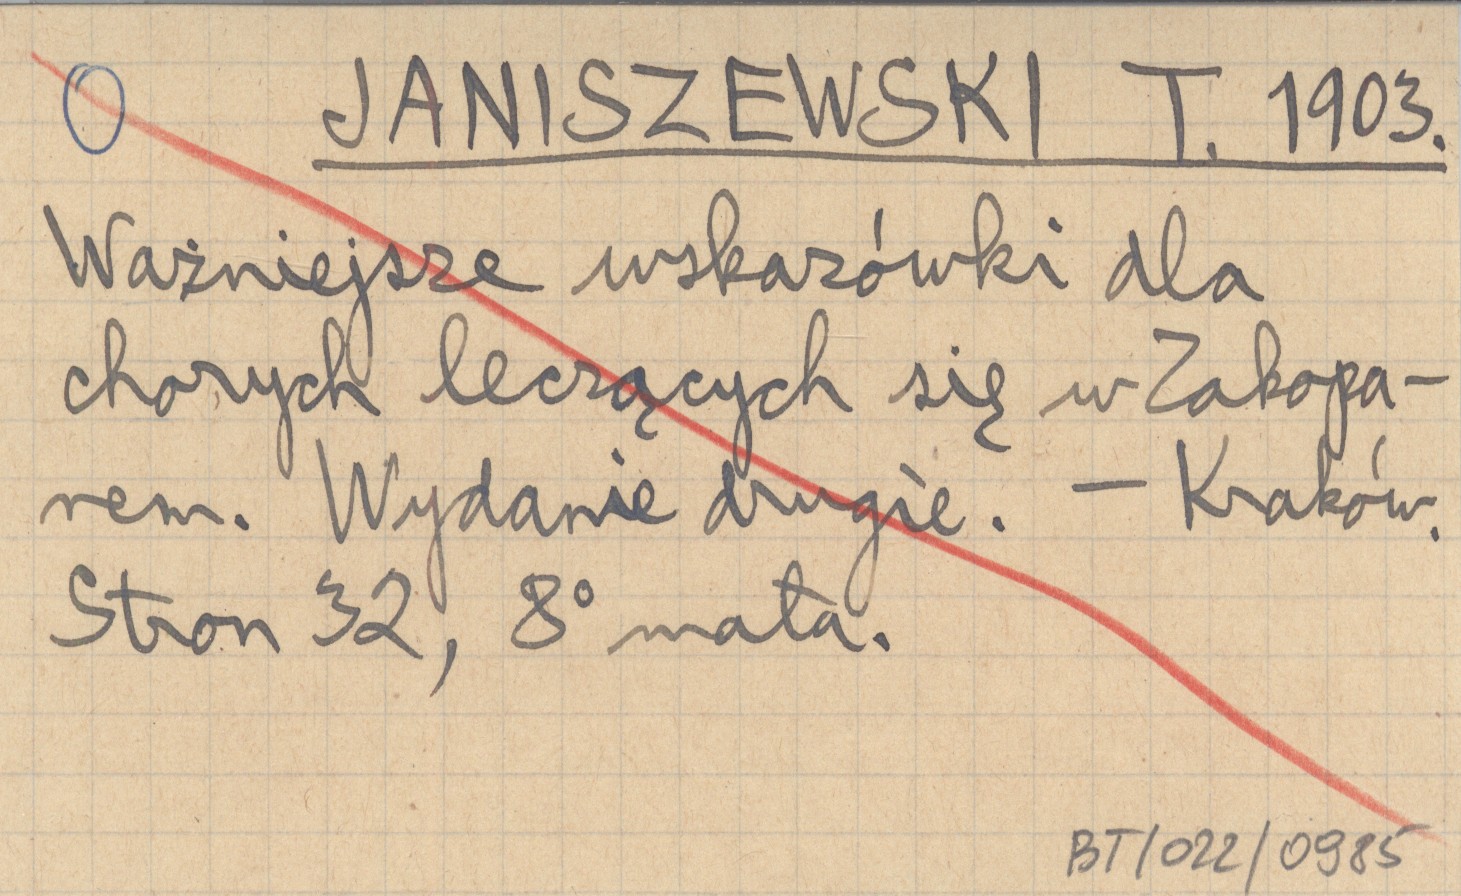 JANISZEWSKI T. 1903.
Ważniejsze wskazówki dla
chorych leczących się w Zakopa-
nem. Wydanie drugie. — Kraków.
Stron 32, 8° mała.
BT/022/0985